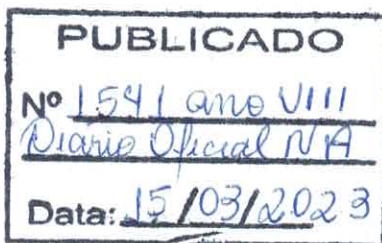 PUBLICADO
Nº 1541 ano VIII
Diario Oficial NA
Data: 15/03/2023